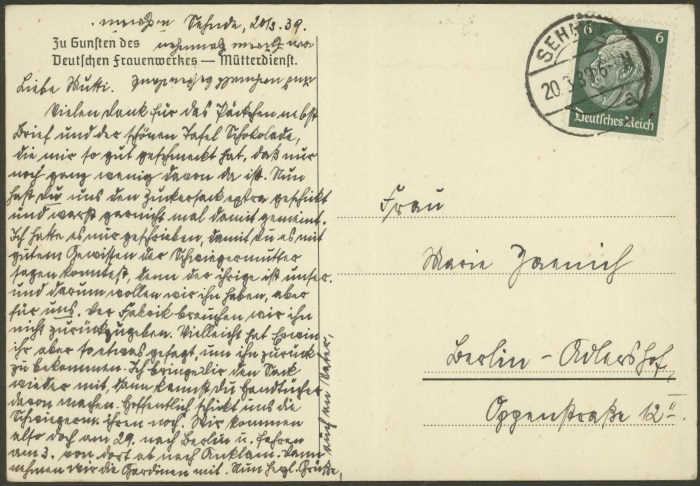 Sehnde, 20.3.39.
Zu Gunsten des
Deutschen Frauenwerkes — Mütterdienst.
Liebe Mutti.
Vielen Dank für das Päckchen nebst
Brief und der schönen Tafel Schokolade,
die mir so gut geschmeckt hat, daß nur
noch ganz wenig davon da ist. Nun
hast du uns den Zuckersack extra geschickt
und warst garnicht mal damit gemeint.
Ich hatte es nur geschrieben, damit du es mit
gutem Gewissen der Schwiegermutter
sagen konntest, denn der ihrige ist unser
und darum wollen wir ihn haben, aber
für uns. Der Fabrik brauchen wir ihn
nicht zurückzugeben. Vielleicht hat Erwin
ihr aber so etwas gesagt, um ihn zurück
zu bekommen. Ich bringe dir den Sack
wieder mit, dann kannst du Handtücher
davon machen. Hoffentlich schickt uns die
Schwiegerm. ihren noch. Wir kommen
also doch am 29. nach Berlin u. fahren
am 3. von dort ab nach Anklam. Dann
nehmen wir die Gardinen mit. Nun herzl. Grüße,
auch an Vater,
SEHNDE
20.3.39
a
6
6
Deutsches Reich
Frau
Marie Jaenich
Berlin - Adlershof,
Oppenstraße 12 II.